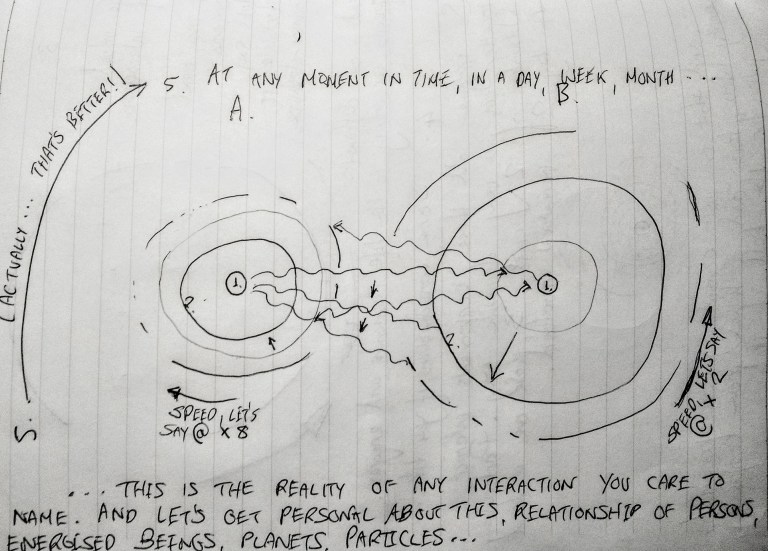 5. AT ANY MOMENT IN TIME, IN A DAY, WEEK, MONTH ...
A.
B.
(ACTUALLY ... THAT'S BETTER!)
5.
1.
1.
2.
2.
SPEED, LET'S
SAY @ x 8
SPEED, LETS SAY
@ x 2
... THIS IS THE REALITY OF ANY INTERACTION YOU CARE TO
NAME. AND LET'S GET PERSONAL ABOUT THIS, RELATIONSHIP OF PERSONS,
ENERGISED BEINGS, PLANETS, PARTICLES...